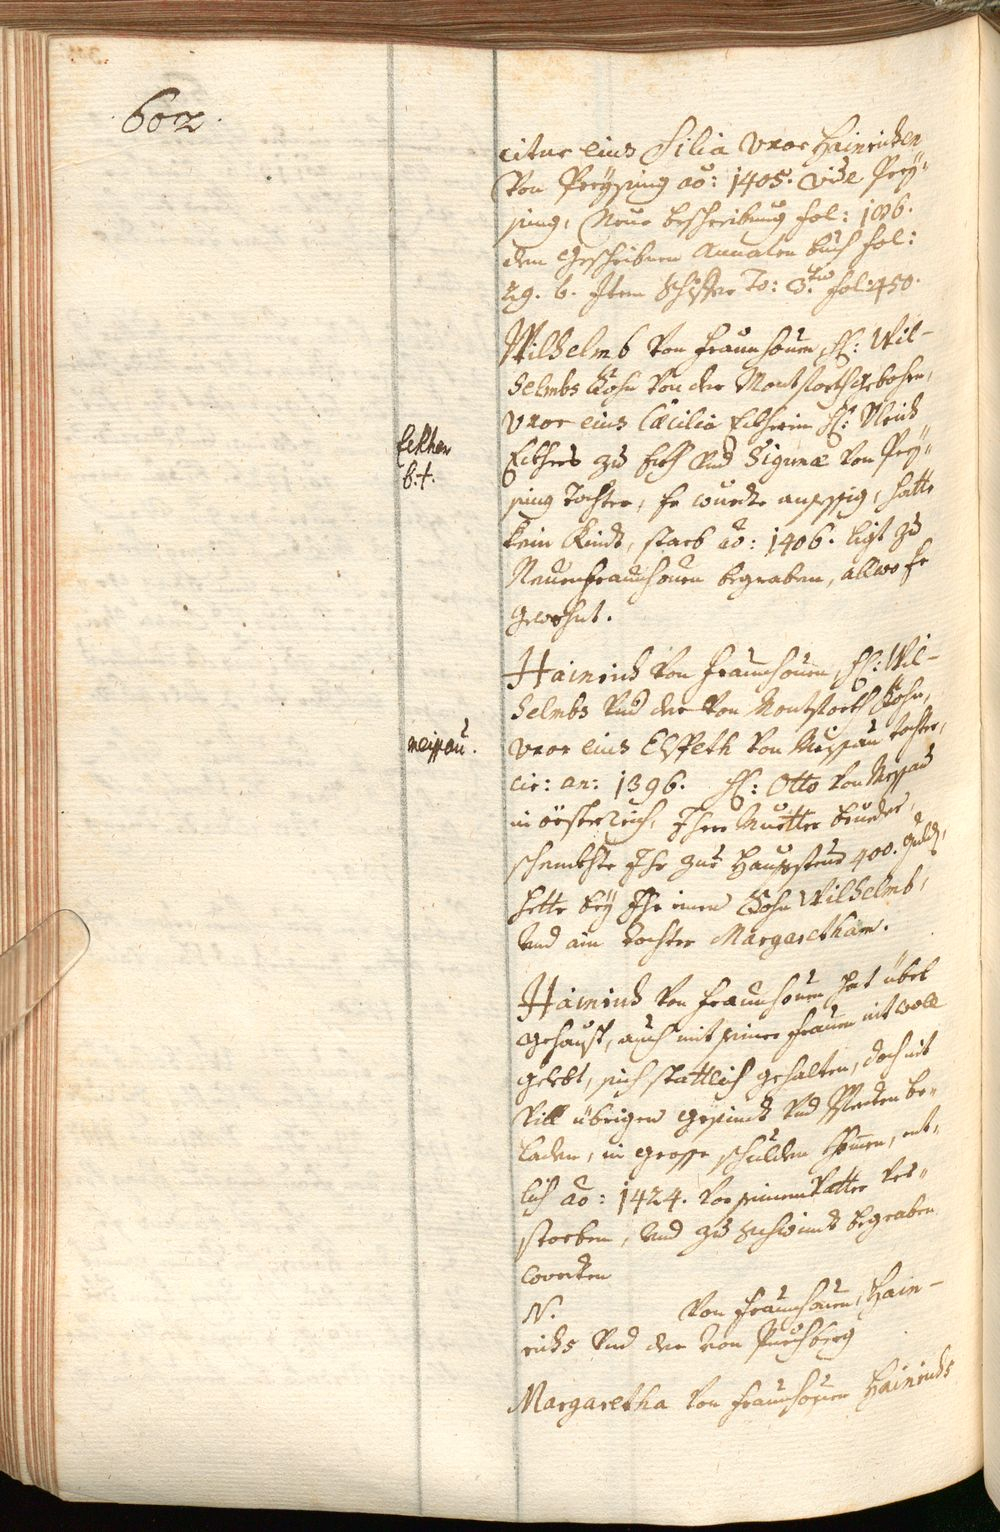 602.
citur eius Filia Uxor Hainrichen
von Preysing ao: 1405. vide Prey¬
sing, Neue beschreibung fol: 106.
dem geschribnen Annalen buch fol:
29. b. Item To: 3. fol: 450.
Wilhelmb von Fraunhouen, H: Wil¬
helmbs Sohn von der Montstorf gebohrn,
Uxor eius Cæcilia Eckherin H: 
Eckhers zu vnd Sigunæ von Prey¬
sing Tochter, Er wurde aussezig, hatte
kein Kindt, starb ao: 1406. ligt zu
Neuenfraunhouen begraben, allwo Er
gewohnt.
Eckher
b.t.
Hainrich von Fraunhouen, H: Wil¬
helmbs vnd der von Montstorf Sohn,
uxor eius Elspeth von Meissau tochter,
cir: an: 1396. H: Otto von Meissau
in össterreich, Ihrer Muetter brueder,
schenckhte Ihr zur 400. guld,
hette bey Ihr einen Sohn Wilhelmb,
vnd ain tochter Margaretham.
meissau.
Hainrich von Fraunhouen hat übel
gehaust, auch mit seiner Frauen nit woll
gelebt, sich stattlich gehalten, doch mit
vill übrigen gesindt vnd Pferdten be¬
laden, in grosse schulden khomen, ent¬
lich ao: 1424. vor seinem Vatter ver¬
storben, vnd zu begraben
worden
N. von Fraunhouen, Hain¬
richs vnd der von Puechberg
Margaretha von Fraunhouen Hainrichs